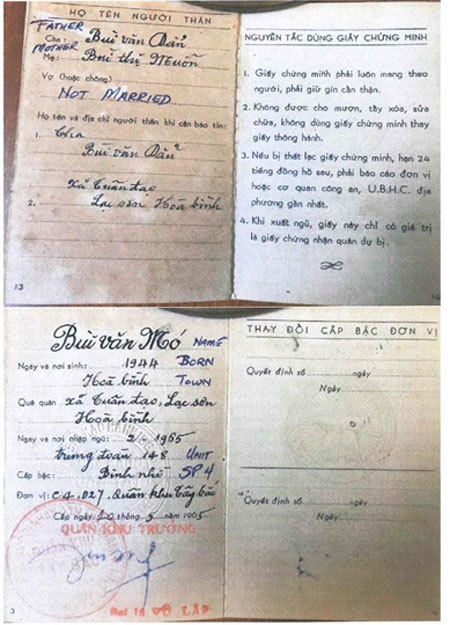 HỌ TÊN NGƯỜI THÂN
FATHER
Cha: Bùi văn Dán
MOTHER
Mẹ: Bùi thị Nguồn
Vợ (hoặc chồng)
NOT MARRIED
Họ tên và địa chỉ người thân khi cần báo tin:
1. Cha
Bùi văn Dán
xã Tuân đạo
2. Lạc sơn Hoà bình
13
NGUYÊN TẮC DÙNG GIẤY CHỨNG MINH
1. Giấy chứng minh phải luôn mang theo
người, phải giữ gìn cẩn thận.
2. Không được cho mượn, tẩy xóa, sửa
chữa, không dùng giấy chứng minh thay
giấy thông hành.
3. Nếu bị thất lạc giấy chứng minh, hạn 24
tiếng đồng hồ sau, phải báo cáo đơn vị
hoặc cơ quan công an, U.B.H.C. địa
phương gần nhất.
4. Khi xuất ngũ, giấy này chỉ có giá trị
là giấy chứng nhận quân dự bị.
Bùi văn Mó NAME
Ngày và nơi sinh: 1944 BORN
Hoà bình TOWN
Quê quán xã Tuân đạo, Lạc sơn
Hoà bình
Ngày và nơi nhập ngũ: 2 1965
trung đoàn 148 UNIT
Cấp bậc: Binh nhì SP4
Đơn vị: C4, D27, Quân khu Tây bắc
Cấp ngày 20 tháng 5 năm 1965
QUÂN KHU TRƯỞNG
3
THAY ĐỔI CẤP BẬC ĐƠN VỊ
Quyết định số ngày
Ngày
Quyết định số ngày
Ngày